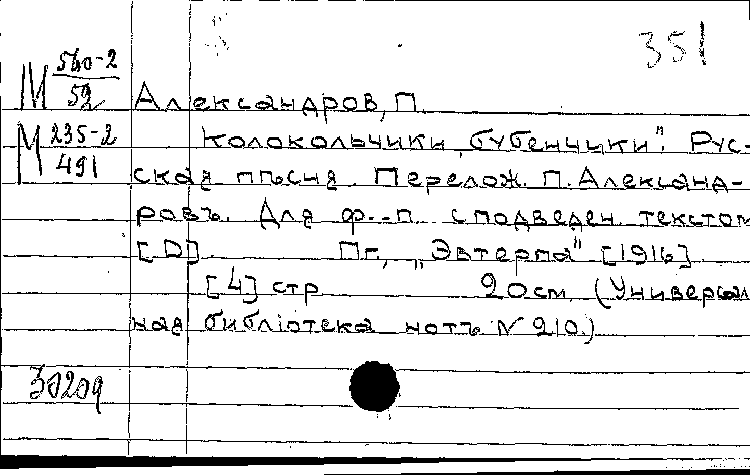 351
М 540-2
52
Александров, П.
М 235-2
491
Колокольчики, бубенчики". Рус-
ская пѣсня. Перелож. П. Александ-
ровъ. Для ф.-п. с подведен. текстом
[D] Пг, „Эвтерпа" [1916]
[4] стр 20см (Универсал
ная библіотека нотъ № 210.)
30209